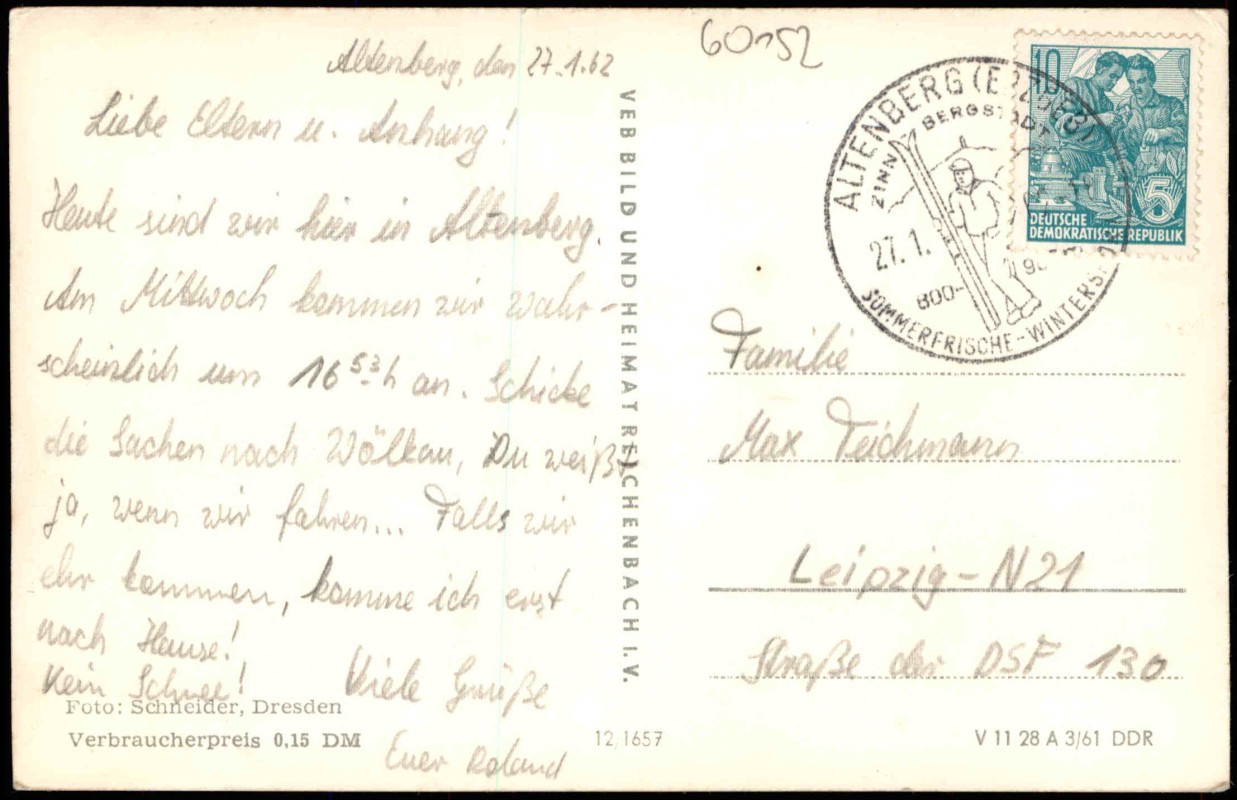 60152
Altenberg, den 27.1.62
Liebe Eltern u. Anhang!
Heute sind wir hier in Altenberg.
Am Mittwoch kommen wir wahr-
scheinlich um 16 53 h an. Schicke
die Sachen nach Wölkau, Du weißt
ja, wenn wir fahren... Falls wir
ehr kommen, komme ich erst
nach Hause!
Kein Schnee! Viele Grüße
Euer Roland
Foto: Schneider, Dresden
Verbraucherpreis 0,15 DM
VEB BILD UND HEIMAT REICHENBACH I. V.
12/1657
V 11 28 A 3/61 DDR
ALTENBERG (ERZGEB)
ZINN BERGSTADT
27.1.
800-
SOMMERFRISCHE-WINTERSP
10
5
DEUTSCHE
DEMOKRATISCHE REPUBLIK
Familie
Max Teichmann
Leipzig-N21
Straße der DSF 130